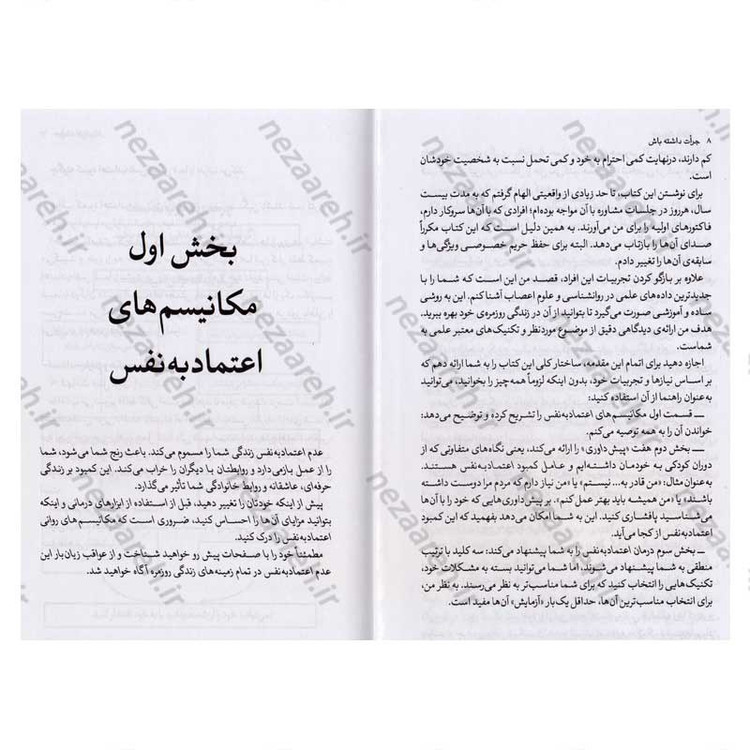 ۸ جرأت داشته باش
کم دارند، درنهایت کمی احترام به خود و کمی تحمل نسبت به شخصیت خودشان
است.
برای نوشتن این کتاب، تا حد زیادی از واقعیتی الهام گرفتم که به مدت بیست
سال، هرروز در جلسات مشاوره با آن مواجه بوده‌ام؛ افرادی که با آن‌ها سروکار دارم،
فاکتورهای اولیه را برای من می‌آورند. به همین دلیل است که این کتاب مکرراً
صدای آن‌ها را بازتاب می‌دهد. البته برای حفظ حریم خصوصی ویژگی‌ها و
سابقه‌ی آن‌ها را تغییر دادم.
علاوه بر بازگو کردن تجربیات این افراد، قصد من این است که شما را با
جدیدترین داده‌های علمی در روانشناسی و علوم اعصاب آشنا کنم. این به روشی
ساده و آموزشی صورت می‌گیرد تا بتوانید از آن در زندگی روزمره‌ی خود بهره ببرید.
هدف من ارائه‌ی دیدگاهی دقیق از موضوع موردنظر و تکنیک‌های معتبر علمی به
شماست.
اجازه دهید برای اتمام این مقدمه، ساختار کلی این کتاب را به شما ارائه دهم که
بر اساس نیازها و تجربیات خود، بدون اینکه لزوماً همه‌چیز را بخوانید، می‌توانید
به‌عنوان راهنما از آن استفاده کنید:
ـــ قسمت اول مکانیسم‌های اعتمادبه‌نفس را تشریح کرده و توضیح می‌دهد:
خواندن آن را به همه توصیه می‌کنم.
ـــ بخش دوم هفت «پیش‌داوری» را ارائه می‌کند، یعنی نگاه‌های متفاوتی که از
دوران کودکی به خودمان داشته‌ایم و عامل کمبود اعتمادبه‌نفس هستند.
به‌عنوان‌مثال: «من قادر به... نیستم» یا «من نیاز دارم که مردم مرا دوست داشته
باشند» یا «من همیشه باید بهتر عمل کنم». بر پیش‌داوری‌هایی که خود را با آن‌ها
می‌شناسید پافشاری کنید. این به شما امکان می‌دهد بفهمید که این کمبود
اعتمادبه‌نفس از کجا می‌آید.
ـــ بخش سوم درمان اعتمادبه‌نفس را به شما پیشنهاد می‌کند: سه کلید با ترتیب
منطقی به شما پیشنهاد می‌شوند، اما شما می‌توانید بسته به مشکلات خود،
تکنیک‌هایی را انتخاب کنید که برای شما مناسب‌تر به نظر می‌رسند. به نظر من،
برای انتخاب مناسب‌ترین آن‌ها، حداقل یک‌بار «آزمایش» آن‌ها مفید است.
بخش اول
مکانیسم‌های
اعتمادبه‌نفس
عدم اعتمادبه‌نفس زندگی شما را مسموم می‌کند. باعث رنج شما می‌شود، شما
را از عمل بازمی‌دارد و روابطتان با دیگران را خراب می‌کند. این کمبود بر زندگی
حرفه‌ای، عاشقانه و روابط خانوادگی شما تأثیر می‌گذارد.
پیش از اینکه خودتان را تغییر دهید، قبل از استفاده از ابزارهای درمانی و اینکه
بتوانید مزایای آن‌ها را احساس کنید، ضروری است که مکانیسم های روانی
اعتمادبه‌نفس را درک کنید.
مطمئناً خود را با صفحات پیش رو خواهید شناخت و از عواقب زیان‌بار این
عدم اعتمادبه‌نفس در تمام زمینه‌های زندگی روزمره، آگاه خواهید شد.
nezaareh.ir